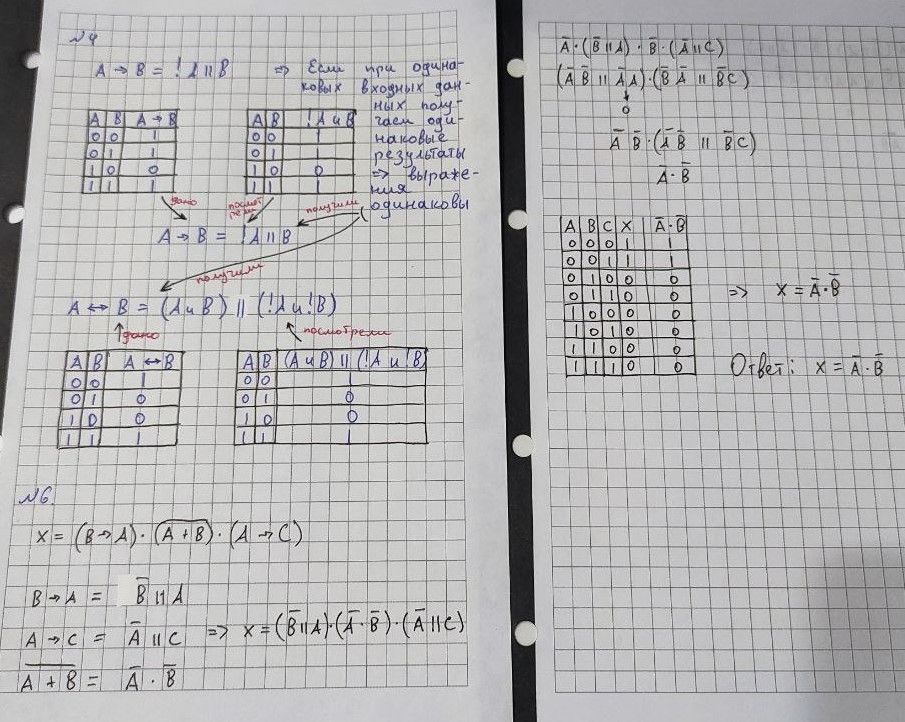 №4
A → B = !A || B ⇒ Если при одина-
ковых входных дан-
ных полу-
чаем оди-
наковые
результаты
⇒ выраже-
ния
одинаковы
A B A → B
0 0 1
0 1 1
1 0 0
1 1 1
A B !A и B
0 0 1
0 1 1
1 0 0
1 1 1
дано
посмот
рели
получили
A → B = !A || B
получили
A ↔ B = (A и B) || (!A и !B)
дано
посмотрели
A B A ↔ B
0 0 1
0 1 0
1 0 0
1 1 1
A B (A и B) || (!A и !B)
0 0 1
0 1 0
1 0 0
1 1 1
№6
X = (B → A) · (A̅ ̅+̅ ̅B̅) · (A → C)
B → A = B̅ || A
A → C = A̅ || C ⇒ X = (B̅ || A) · (A̅ · B̅) · (A̅ || C)
A̅ ̅+̅ ̅B̅ = A̅ · B̅
A̅ · (B̅ || A) · B̅ · (A̅ || C)
(A̅ B̅ || A̅ A) · (B̅ A̅ || B̅ C)
↓
0
A̅ B̅ · (A̅ B̅ || B̅ C)
A̅ · B̅
A B C X A̅ · B̅
0 0 0 1 1
0 0 1 1 1
0 1 0 0 0
0 1 1 0 0
1 0 0 0 0
1 0 1 0 0
1 1 0 0 0
1 1 1 0 0
⇒ X = A̅ · B̅
Ответ: X = A̅ · B̅